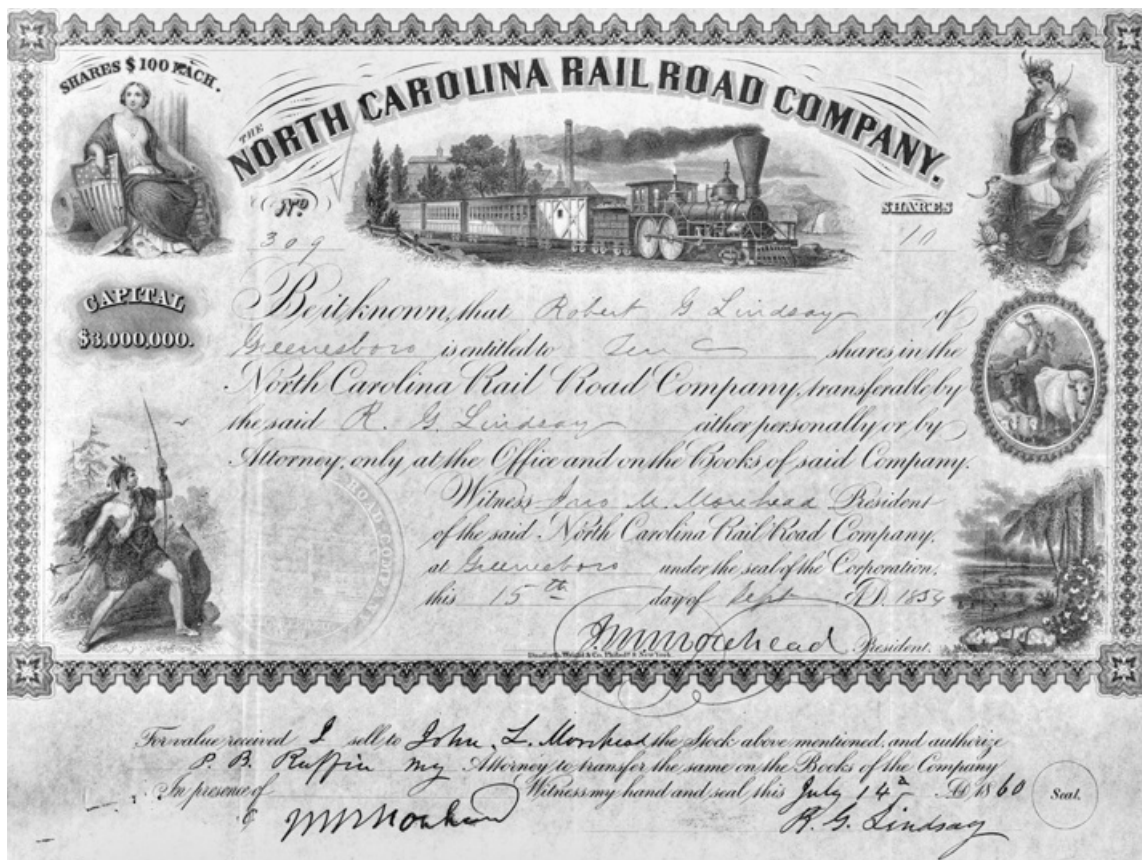 SHARES $100 EACH.
THE
NORTH CAROLINA RAIL ROAD COMPANY.
No
SHARES
309
10
CAPITAL
$3,000,000.
Be it known, that Robert G Lindsay of
Greenesboro is entitled to Ten shares in the
North Carolina Rail Road Company, transferable by
the said R. G. Lindsay either personally or by
Attorney, only at the Office and on the Books of said Company.
Witness Jno M. Morehead President
of the said North Carolina Rail Road Company,
at Greenesboro under the seal of the Corporation,
this 15th day of Sept A.D. 1854
J M Morehead President.
Danforth, Wright & Co. Philada & New York.
ROAD COMPANY
For value received I sell to John. L. Morehead the Stock above mentioned, and authorize
P. B. Ruffin my Attorney to transfer the same on the Books of the Company
In presence of Witness my hand and seal this July 14 AD 1860
Seal.
J M Morehead
R. G. Lindsay